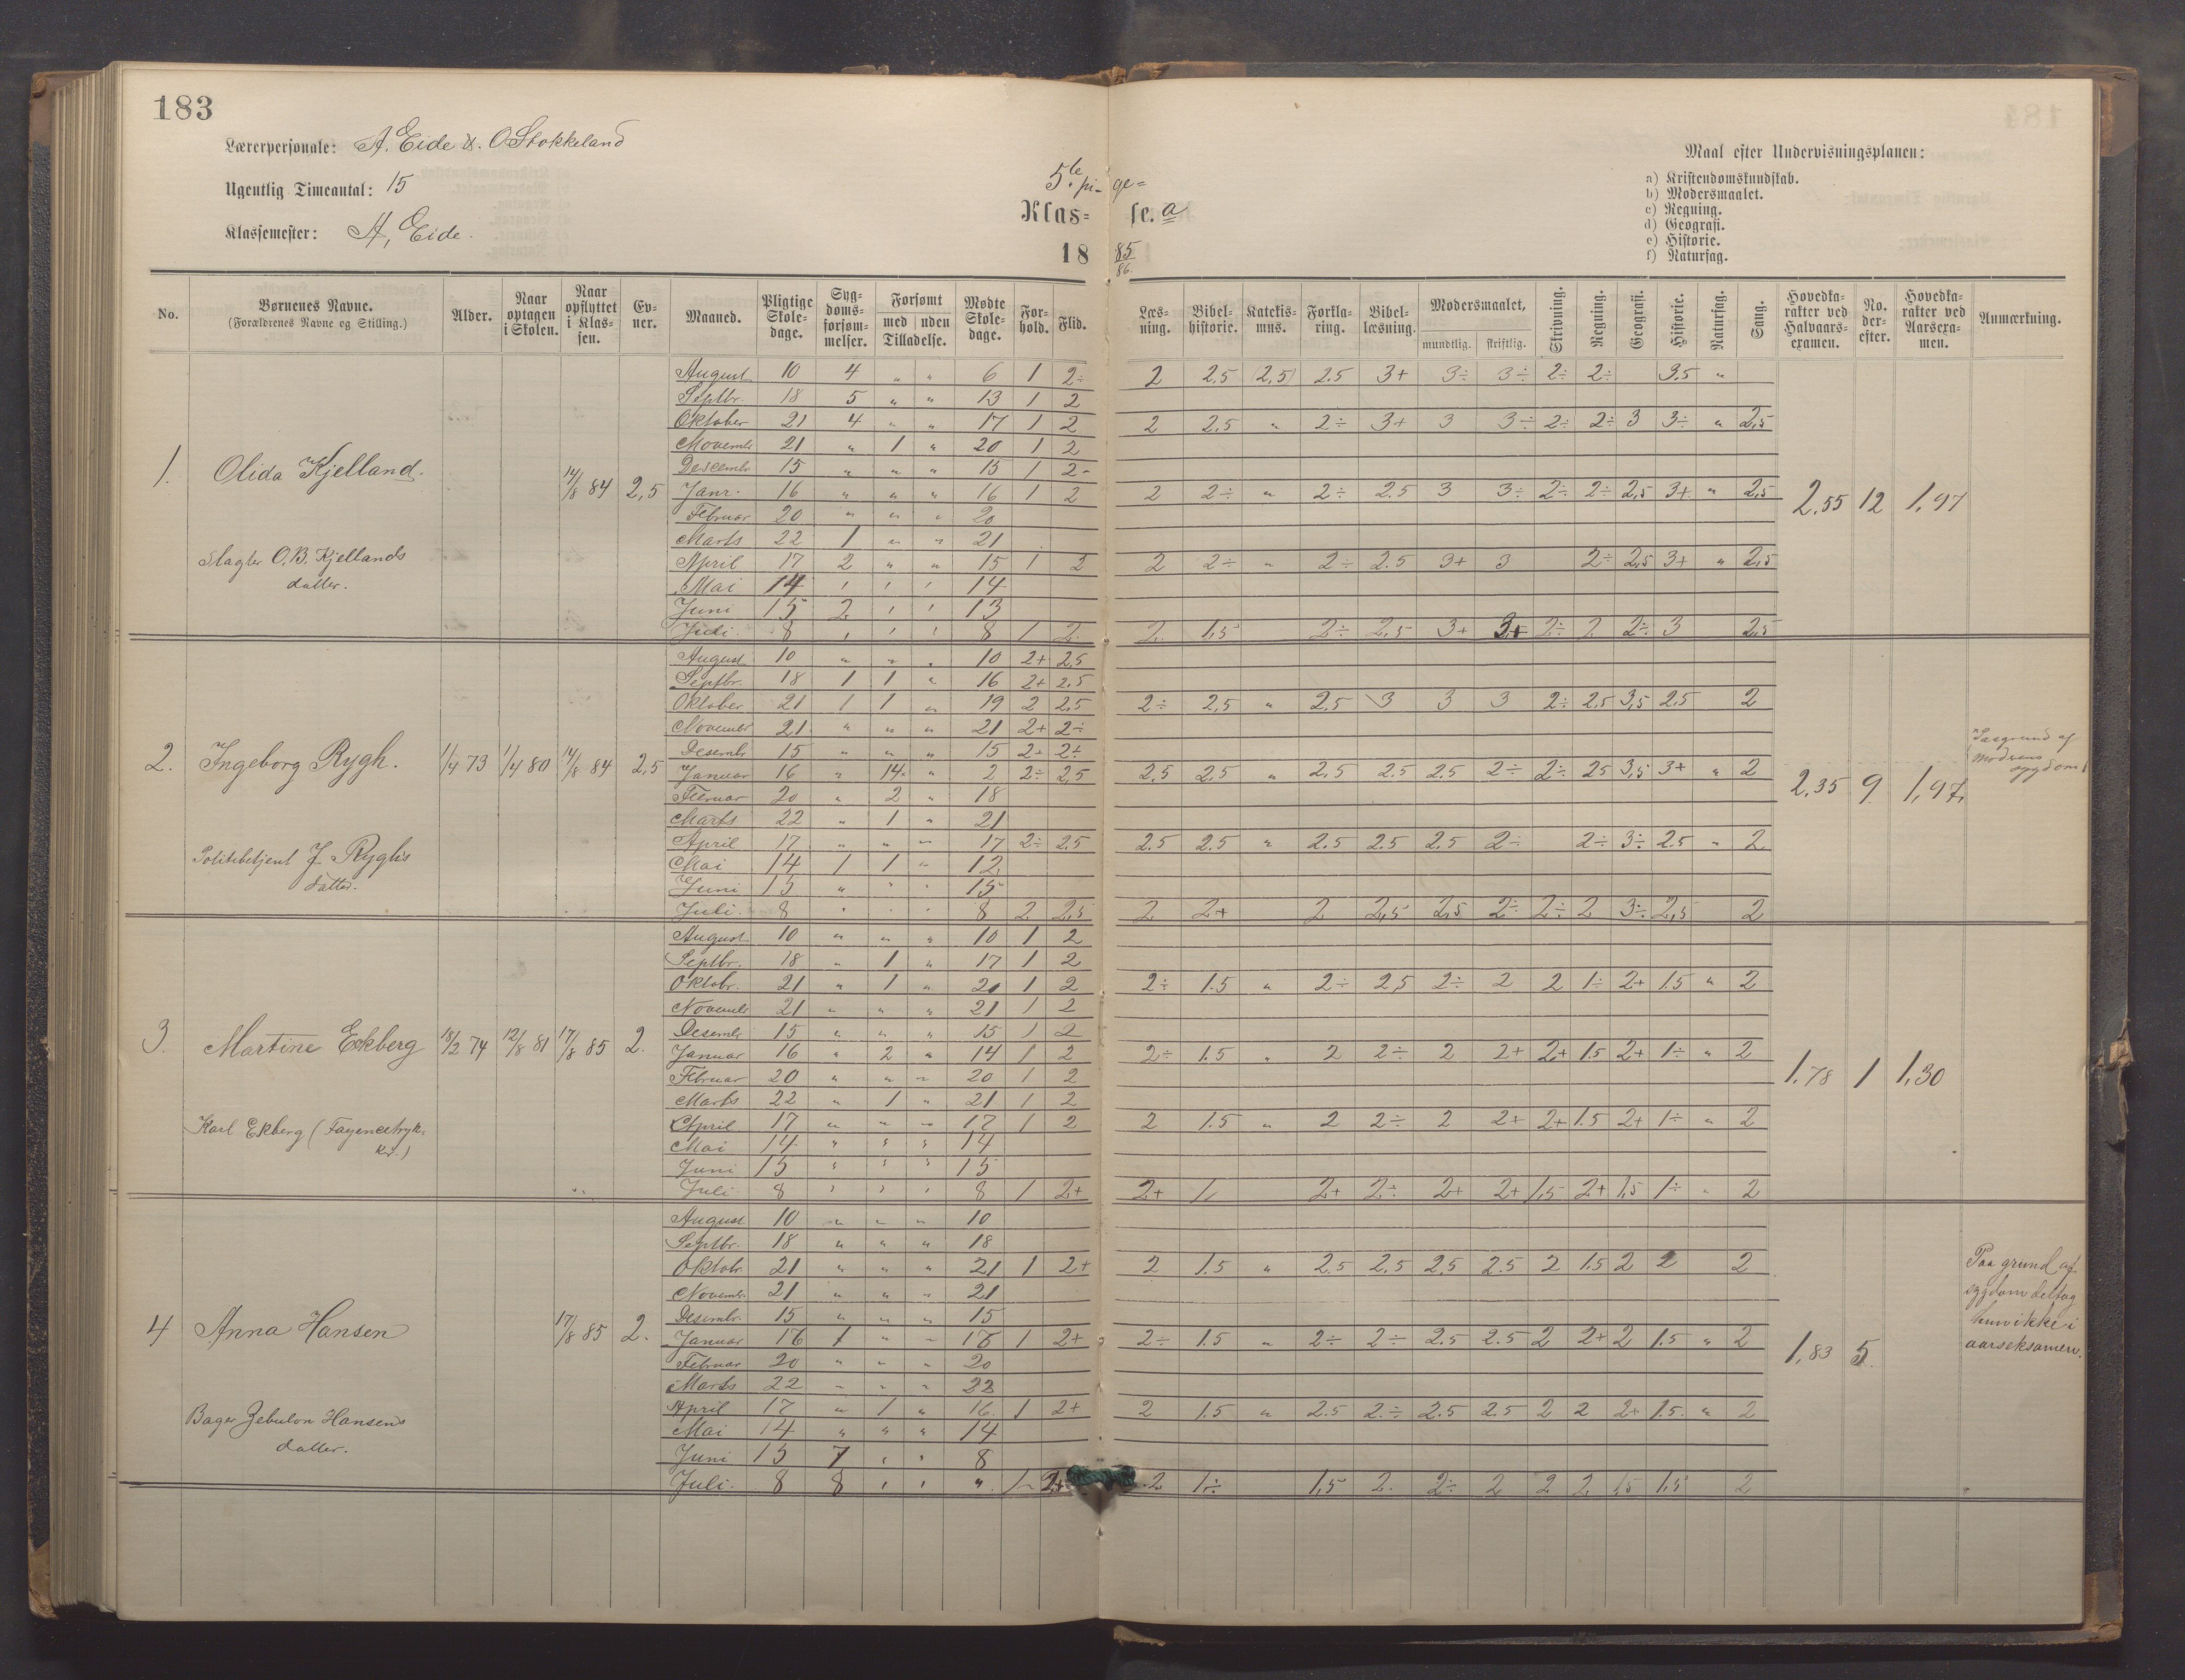 183
Lærerpersonale: A. Eide & O Stokkeland
Ugentlig Timeantal: 15
Klassemester: A, Eide.
5te pi- ge=
Klas= se. a
18 85/86.
Maal efter Undervisningsplanen:
a) Kristendomskundskab.
b) Modersmaalet.
c) Regning.
d) Geografi.
e) Historie.
f) Naturfag.
No. | Børnenes Navne. (Forældrenes Navne og Stilling.) | Alder. | Naar optagen i Skolen. | Naar opflyttet i Klassen. | Evner. | Maaned. | Pligtige Skoledage. | Sygdomsforsømmelser. | Forsømt med uden Tilladelse. | Mødte Skoledage. | Forhold. | Flid. | Læsning. | Bibelhistorie. | Katekismus. | Forklaring. | Bibellæsning. | Modersmaalet, mundtlig. skriftlig. | Skrivning. | Regning. | Geografi. | Historie. | Naturfag. | Sang. | Hovedkarakter ved Halvaarsexamen. | No. derefter. | Hovedkarakter ved Aarsexamen. | Anmærkning.
1. Olida Kjelland. 14/8 84 2,5
Slagter O. B. Kjellands
datter.
August 10 4 " " 6 1 2÷ 2 2.5 (2,5) 2.5 3+ 3÷ 3÷ 2÷ 2÷ 3.5 "
Septbr. 18 5 " " 13 1 2
Oktober 21 4 " " 17 1 2 2 2.5 " 2÷ 3+ 3 3÷ 2÷ 2÷ 3 3÷ " 2,5
Novembr 21 " 1 " 20 1 2
Descembr 15 " " " 15 1 2-
Janr. 16 " " " 16 1 2 2 2÷ " 2÷ 2.5 3 3÷ 2÷ 2÷ 2,5 3+ " 2,5
Februar 20 " " " 20
Marts 22 1 " " 21
April 17 2 " " 15 1 2 2 2÷ " 2÷ 2.5 3+ 3 2÷ 2,5 3+ " 2,5
Mai 14 ' ' ' 14
Juni 15 2 ' ' 13
Juli. 8 ' ' ' 8 1 2. 2. 1,5 2÷ 2,5 3+ 3+ 2÷ 2 2÷ 3 2,5
2.55 12 1,97
2. Ingeborg Rygh. 1/4 73 1/4 80 14/8 84 2,5
Politibetjent J. Ryghs
datter.
August 10 " " " 10 2+ 2,5
Septbr. 18 1 1 " 16 2+ 2.5
Oktober 21 1 1 " 19 2 2,5 2÷ 2,5 " 2.5 3 3 3 2÷ 2.5 3,5 2.5 2
Novembr 21 " " " 21 2+ 2÷
Desembr 15 " " " 15 2÷ 2÷
Januar 16 " 14 " 2 2÷ 2,5 2,5 2.5 " 2,5 2.5 2.5 2÷ 2÷ 25 3,5 3+ " 2
Februar 20 " 2 " 18
Marts 22 " 1 " 21
April 17 " " " 17 2÷ 2.5 2.5 2.5 " 2.5 2.5 2.5 2÷ 2÷ 3÷ 2.5 " 2
Mai 14 1 1 " 12
Juni 15 " " " 15
Juli. 8 " " " 8 2 2,5 2 2+ 2 2,5 2,5 2÷ 2÷ 2 3÷ 2,5 2
2,35 9. 1,97.
af
3. Martine Eckberg 18/2 74 12/8 81 17/8 85 2.
Karl Ekberg (Fayencetryk-
ker.)
August 10 " " " 10 1 2
Septbr. 18 " 1 " 17 1 2
Oktobr. 21 " 1 " 20 1 2 2÷ 1.5 " 2÷ 2,5 2÷ 2 2 1÷ 2+ 1.5 " 2
Novembr 21 " " " 21 1 2
Desembr 15 " " " 15 1 2
Januar 16 " 2 " 14 1 2 2÷ 1.5 " 2 2÷ 2 2+ 2+ 1.5 2+ 1÷ " 2
Februar 20 " " " 20 1 2
Marts 22 " 1 " 21 1 2
April 17 " " " 17 1 2 2 1.5 " 2 2÷ 2 2+ 2+ 1.5 2+ 1÷ " 2
Mai 14 " " " 14
Juni 15 " " " 15
Juli 8 ' ' ' 8 1 2+ 2+ 1, 2+ 2÷ 2+ 2+ 1,5 2+ 1,5 1÷ " 2
1.78 1 1,30
4 Anna Hansen 17/8 85 2.
Bager Zebulon Hansens
datter.
August 10 " " " 10
Septbr. 18 " " " 18
Oktobr 21 " " " 21 1 2+ 2 1.5 " 2.5 2.5 2.5 2.5 2 1.5 2 2 2
Novembr. 21 " " " 21
Desembr. 15 " " " 15
Januar 16 1 " " 1 2+ 2÷ 1.5 " 2÷ 2÷ 2.5 2.5 2 2+ 2 1.5 " 2
Februar 20 " " " 20
Marts 22 " " " 22
April 17 " 1 " 16 1 2+ 2 1.5 " 2.5 2÷ 2.5 2.5 2 2 2+ 1.5 " 2
Mai 14 " " " 14
Juni 15 7 " ' 8
Juli. 8 8 ' ' " 1 2+ 2 1÷ 1,5 2. 2÷ 2 2 2 1,5 1,5 2
1,83 5.
Paa grund af
sygdom deltog
hun ikke i
aarseksamen.